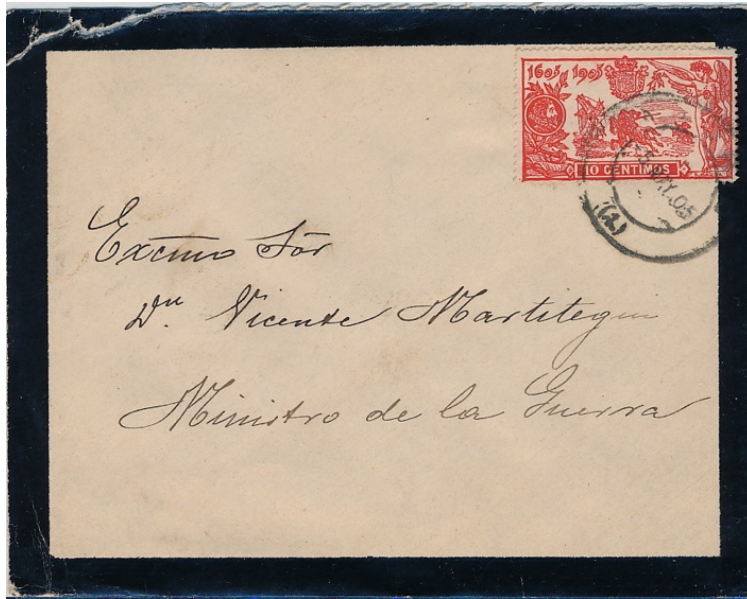 1605 1905
10 CENTIMOS
5 MAY 05
(2)
Excmo Sór
Dn Vicente Martitegui
Ministro de la Guerra